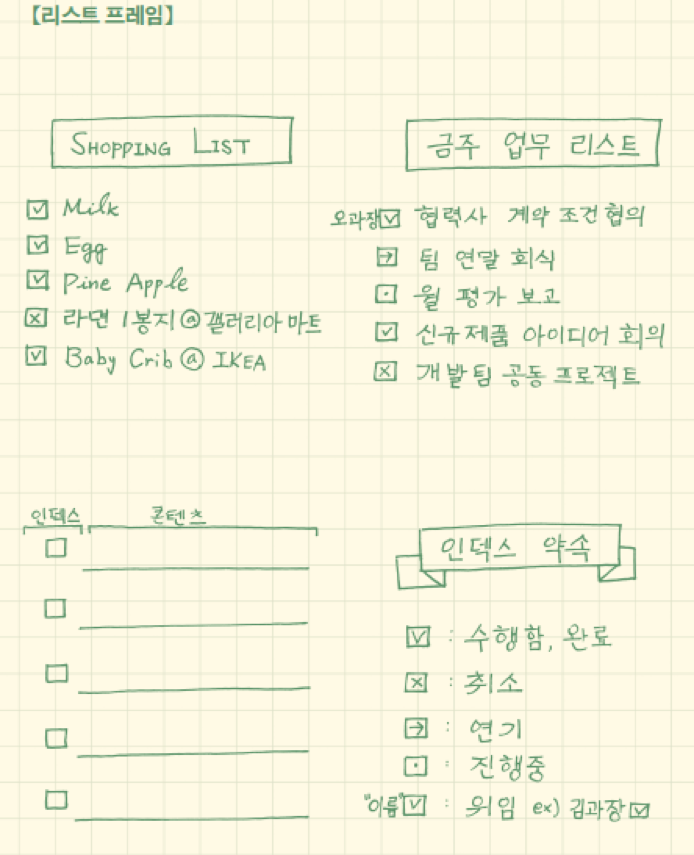 【리스트 프레임】
SHOPPING LIST
☑ Milk
☑ Egg
☑ Pine Apple
☒ 라면 1봉지 @ 갤러리아 마트
☑ Baby Crib @ IKEA
금주 업무 리스트
오과장 ☑ 협력사 계약 조건 협의
→ 팀 연말 회식
· 월 평가 보고
☑ 신규제품 아이디어 회의
☒ 개발팀 공동 프로젝트
인덱스 콘텐츠
인덱스 약속
☑ : 수행함, 완료
☒ : 취소
→ : 연기
· : 진행중
"이름" ☑ : 위임 ex) 김과장 ☑